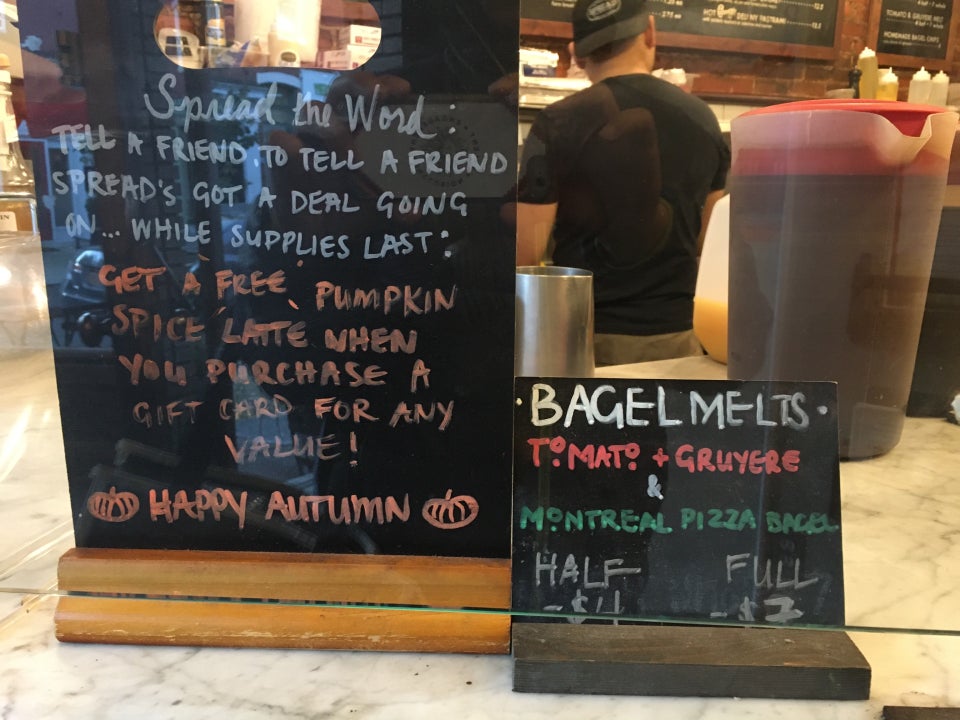 Spread the Word:
TELL A FRIEND.TO TELL A FRIEND
SPREAD'S GOT A DEAL GOING
ON... WHILE SUPPLIES LAST:
GET A FREE PUMPKIN
SPICE LATTE WHEN
YOU PURCHASE A
GIFT CARD FOR ANY
VALUE!
HAPPY AUTUMN
·BAGEL MELTS·
TOMATO + GRUYERE
&
MONTREAL PIZZA BAGEL
HALF FULL
-$4 -$7
HOT DELI NY PASTRAMI
TOMATO & GRUYERE MELT
HOMEMADE BAGEL CHIPS